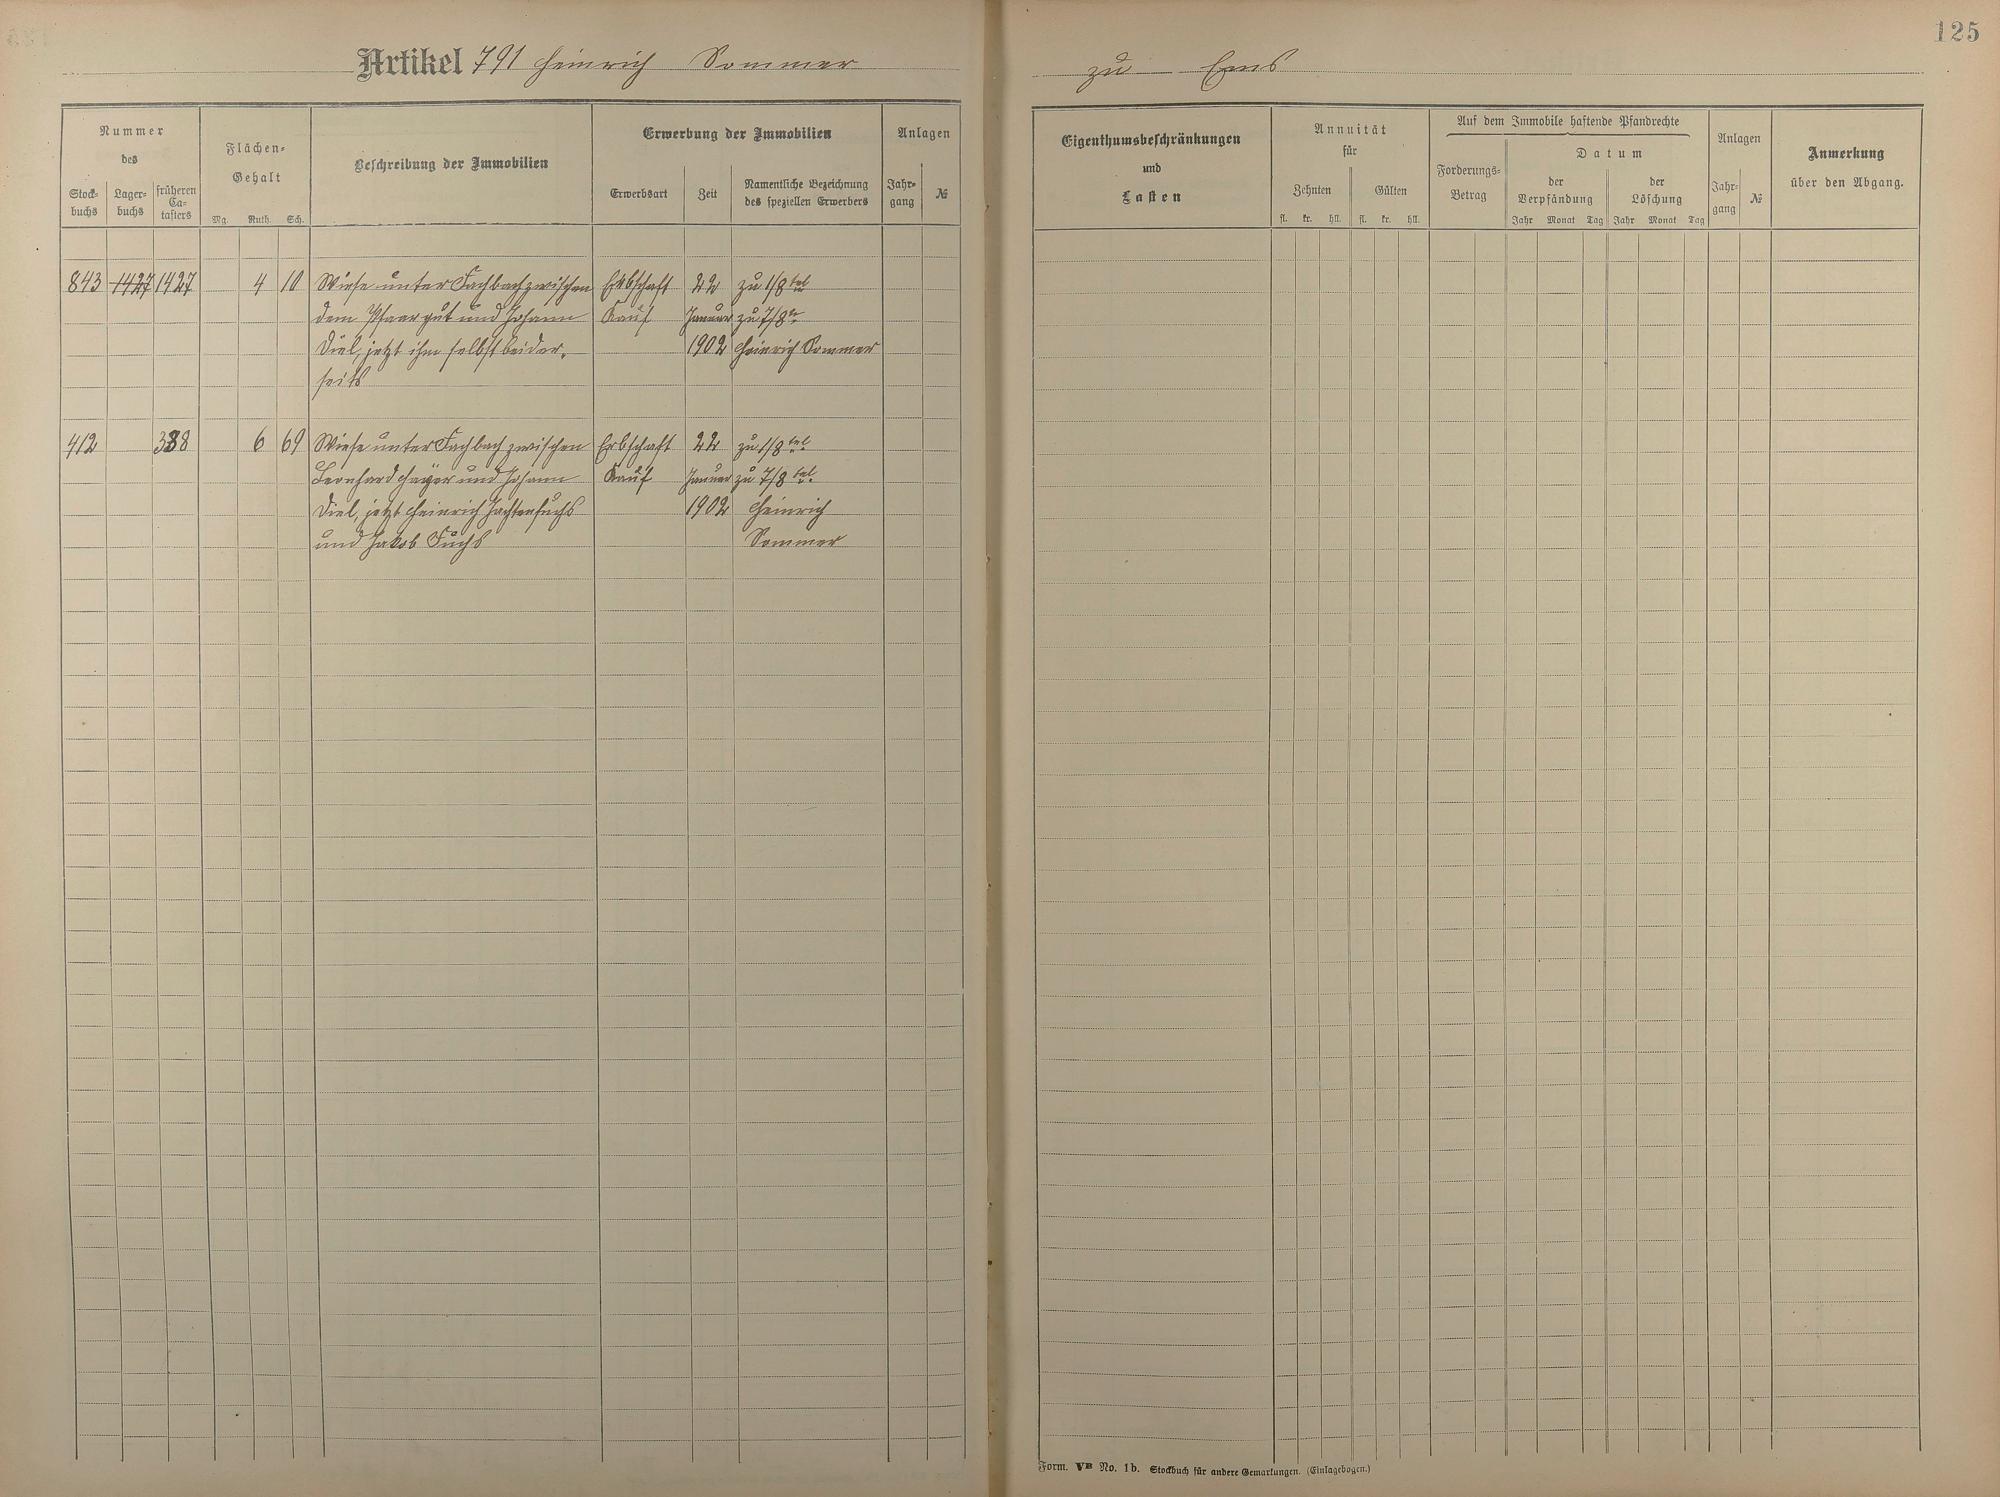 Artikel 791 Heinrich Sommer
zu Ems
125
Nummer
des
Stock-
buchs
Lager-
buchs
früheren
Ca-
tasters
Flächen-
Gehalt
Mg. Ruth. Sch.
Beschreibung der Immobilien
Erwerbung der Immobilien
Erwerbsart
Zeit
Namentliche Bezeichnung
des speziellen Erwerbers
Anlagen
Jahr-
gang
№
Eigenthumsbeschränkungen
und
Lasten
Annuität
für
Zehnten
Gülten
fl. kr. hll. fl. kr. hll.
Auf dem Immobile haftende Pfandrechte
Forderungs-
Betrag
Datum
der
Verpfändung
der
Löschung
Jahr Monat Tag Jahr Monat Tag
Anlagen
Jahr-
gang
№
Anmerkung
über den Abgang.
843 1427 1427 4 10 Wiese unter Fachbach zwischen Erbschaft 22 zu 1/8 tel
dem Pfaargut und Johann Kauf Januar zu 7/8
Diel, jetzt ihm selbst beider- 1902 Heinrich Sommer
seits
412 388 6 69 Wiese unter Fachbach zwischen Erbschaft 22 zu 1/8 tel
Leonhard und Johann Kauf Januar zu 7/8 tel
Diel, jetzt Heinrich Jachtenfuchs 1902 Heinrich
und Jakob Fuchs Sommer
Form. VB No. 1b. Stockbuch für andere Gemarkungen. (Einlagebogen.)